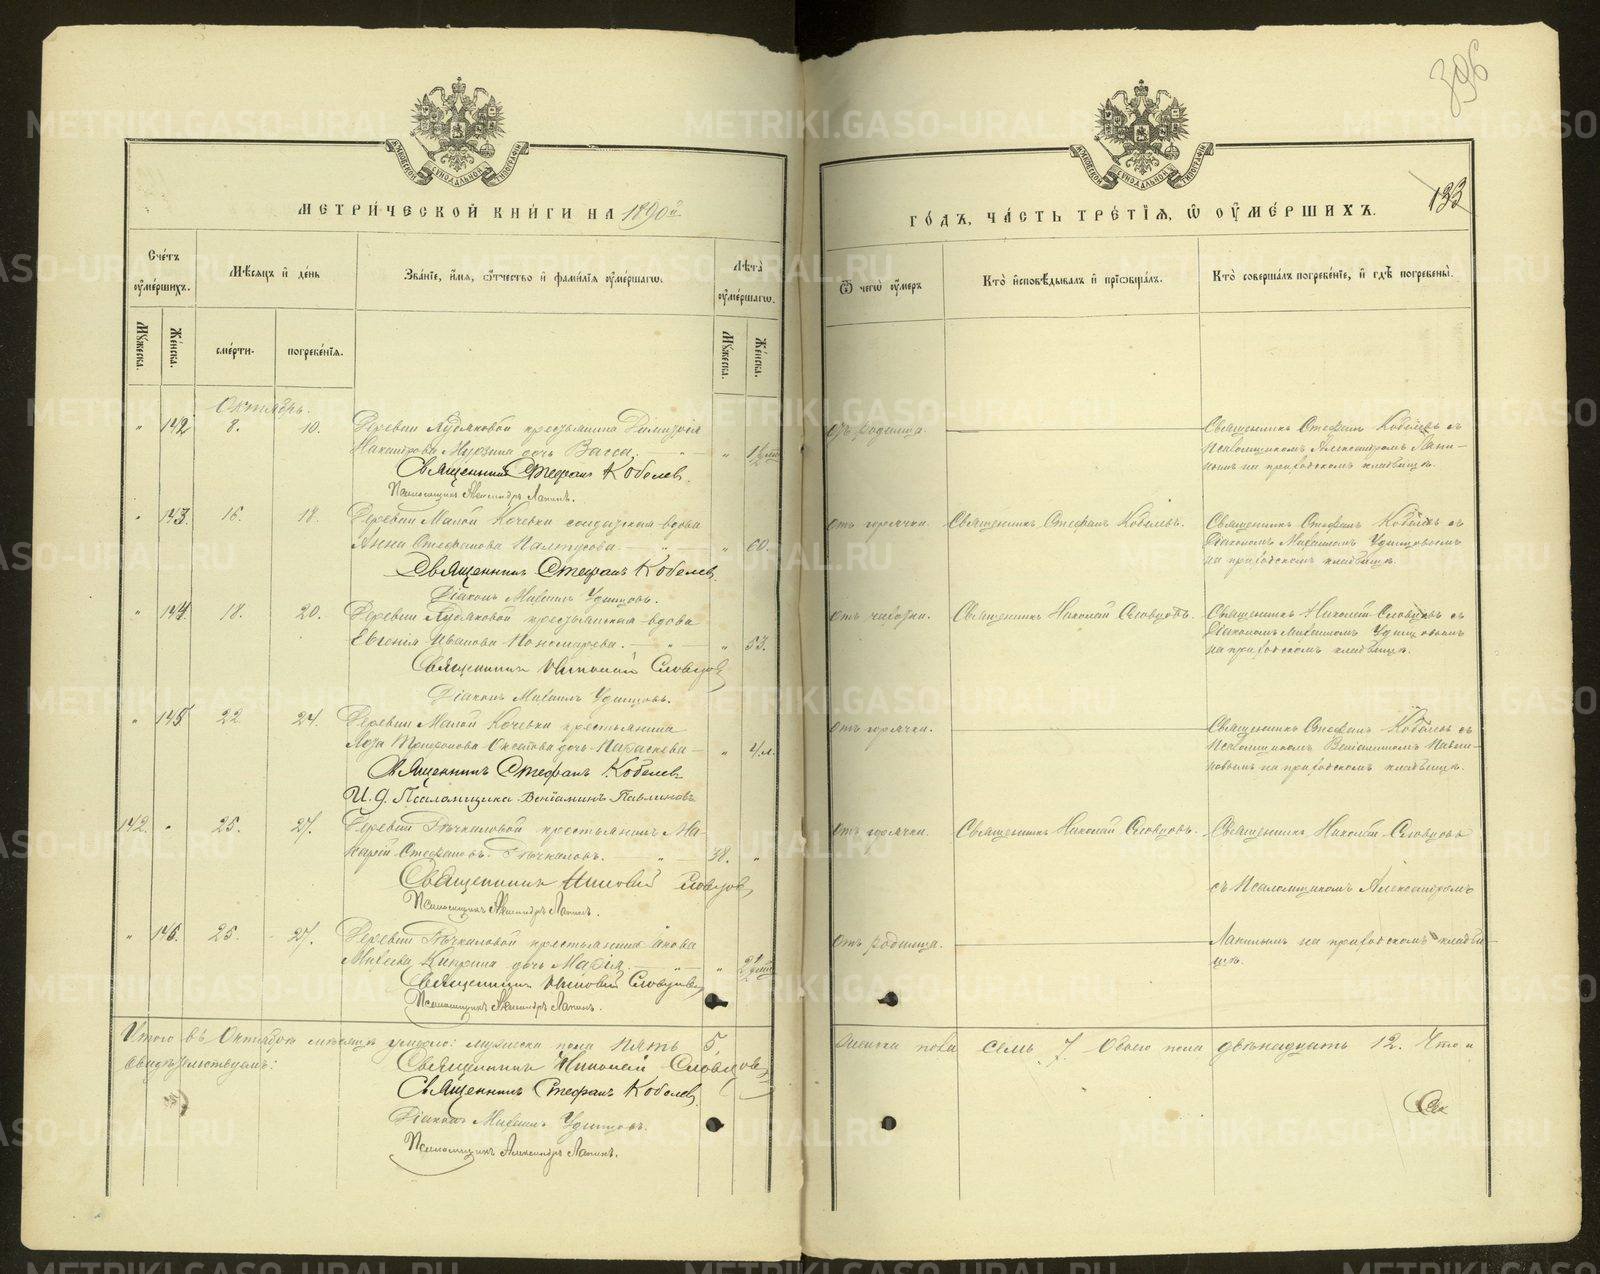 396
133
МЕТРИ́ЧЕСКОЙ КНИ́ГИ НА 1890й
ГО́ДЪ, ЧА́СТЬ ТРЕ́ТІѦ, Ѿ ОУ҆МЕ́РШИХЪ.
Сче́тъ оу҆ме́ршихъ.
Мѣ́сѧцъ и҆ де́нь
Зва́нїе, и҆́мѧ, ѻ҆́тчество и҆ фами́лїѧ оу҆ме́ршагѡ.
Лѣ́та оу҆ме́ршагѡ.
Ѿ чегѡ̀ оу҆́меръ
Кто̀ и҆сповѣ́дывалъ и҆ прїѡбща́лъ.
Кто̀ соверша́лъ погребе́нїе, и҆ гдѣ̀ погребены̀.
Мꙋ́жеска.
Же́нска.
сме́рти.
погребе́нїѧ.
Мꙋ́жеска.
Же́нска.
Октябрь.
" 142 8. 10. Деревни Худяковой крестьянина Димитрія
дочь Васса. " 1½
Священникъ Стефанъ Кобелев.
Псаломщикъ Александръ Лапинъ.
отъ родимца.
Священникъ Стефанъ Кобелевъ съ
Псаломщикомъ Александромъ Лапи-
нымъ на приходскомъ кладбищѣ.
" 143. 16. 18. Деревни Малой Кочевки солдатская вдова
Анна Стефанова Палтусова " 60.
Священникъ Стефанъ Кобелев.
Діаконъ Михаилъ Удинцовъ.
отъ горячки. Священникъ Стефанъ Кобелевъ.
Священникъ Стефанъ Кобелевъ съ
Діакономъ Михаиломъ Удинцовымъ
на приходскомъ кладбищѣ.
" 144. 18. 20. Деревни Худяковой крестьянская вдова
Евгенія Иванова Пономарева. " 53.
Священникъ Николай Словцов
Діаконъ Михаилъ Удинцовъ.
отъ чахотки. Священникъ Николай Словцовъ.
Священникъ Николай Словцовъ съ
Діакономъ Михаиломъ Удинцовымъ
на приходскомъ кладбищѣ.
" 145 22 24. Деревни Малой Кочевки крестьянина
дочь Параскева " 4 л.
Священникъ Стефанъ Кобелев
И. д. Псаломщика Веніаминъ Павлиновъ
отъ горячки.
Священникъ Стефанъ Кобелевъ съ
Псаломщикомъ Веніаминомъ Павли-
новымъ на приходскомъ кладбищѣ.
142. " 25. 27. Деревни Бѣчкаловой крестьянинъ Ма-
карій Стефановъ Бѣчкаловъ. " 38. "
Священникъ Николай Словцов
Псаломщикъ Александръ Лапинъ.
отъ горячки. Священникъ Николай Словцовъ.
Священникъ Николай Словцовъ
съ Псаломщикомъ Александромъ
" 146. 25. 27. Деревни Бѣчкаловой крестьянина Іакова
дочь Марія. "
Священникъ Николай Словцов
Псаломщикъ Александръ Лапинъ.
отъ родимца.
Лапинымъ на приходскомъ кладби-
щѣ.
Итого въ Октябрѣ мѣсяцѣ умерло: мужеска пола пять 5,
женска пола семь 7. Обоего пола двѣнадцать 12. Что и
свидѣтельствуемъ:
Священникъ Николай Словцов
Священникъ Стефанъ Кобелев
Діаконъ Михаилъ Удинцовъ.
Псаломщикъ Александръ Лапинъ.
METRIKI.GASO-URAL.RU